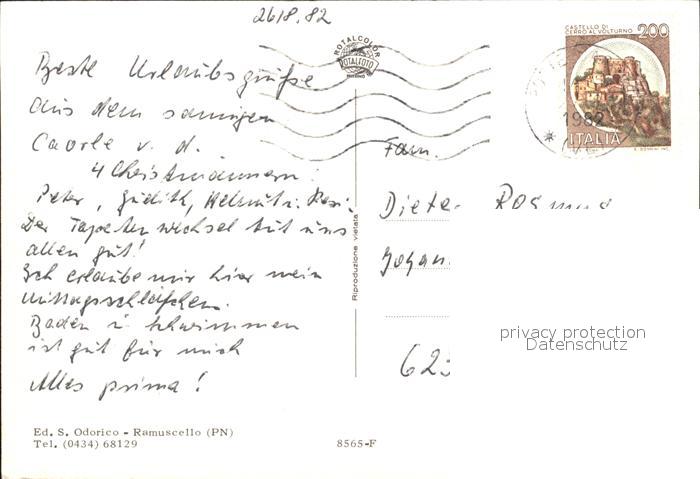 2618.82
Beste Urlaubsgrüße
aus dem sonnigen
Caorle v. d.
4 Christmännern:
Peter, Judith, Helmut u. Resi.
Der Tapetenwechsel tut uns
allen gut!
Ich erlaube mir hier mein
Mittagsschläfchen.
Baden u. schwimmen
ist gut für mich
Alles prima!
Ed. S. Odorico - Ramuscello (PN)
Tel. (0434) 68129
8565-F
ROTALCOLOR
ROTALFOTO
MILANO
Riproduzione vietata
CASTELLO DI
CERRO AL VOLTURNO 200
1982
ITALIA
Fam.
Dieter
Johan
623
privacy protection
Datenschutz